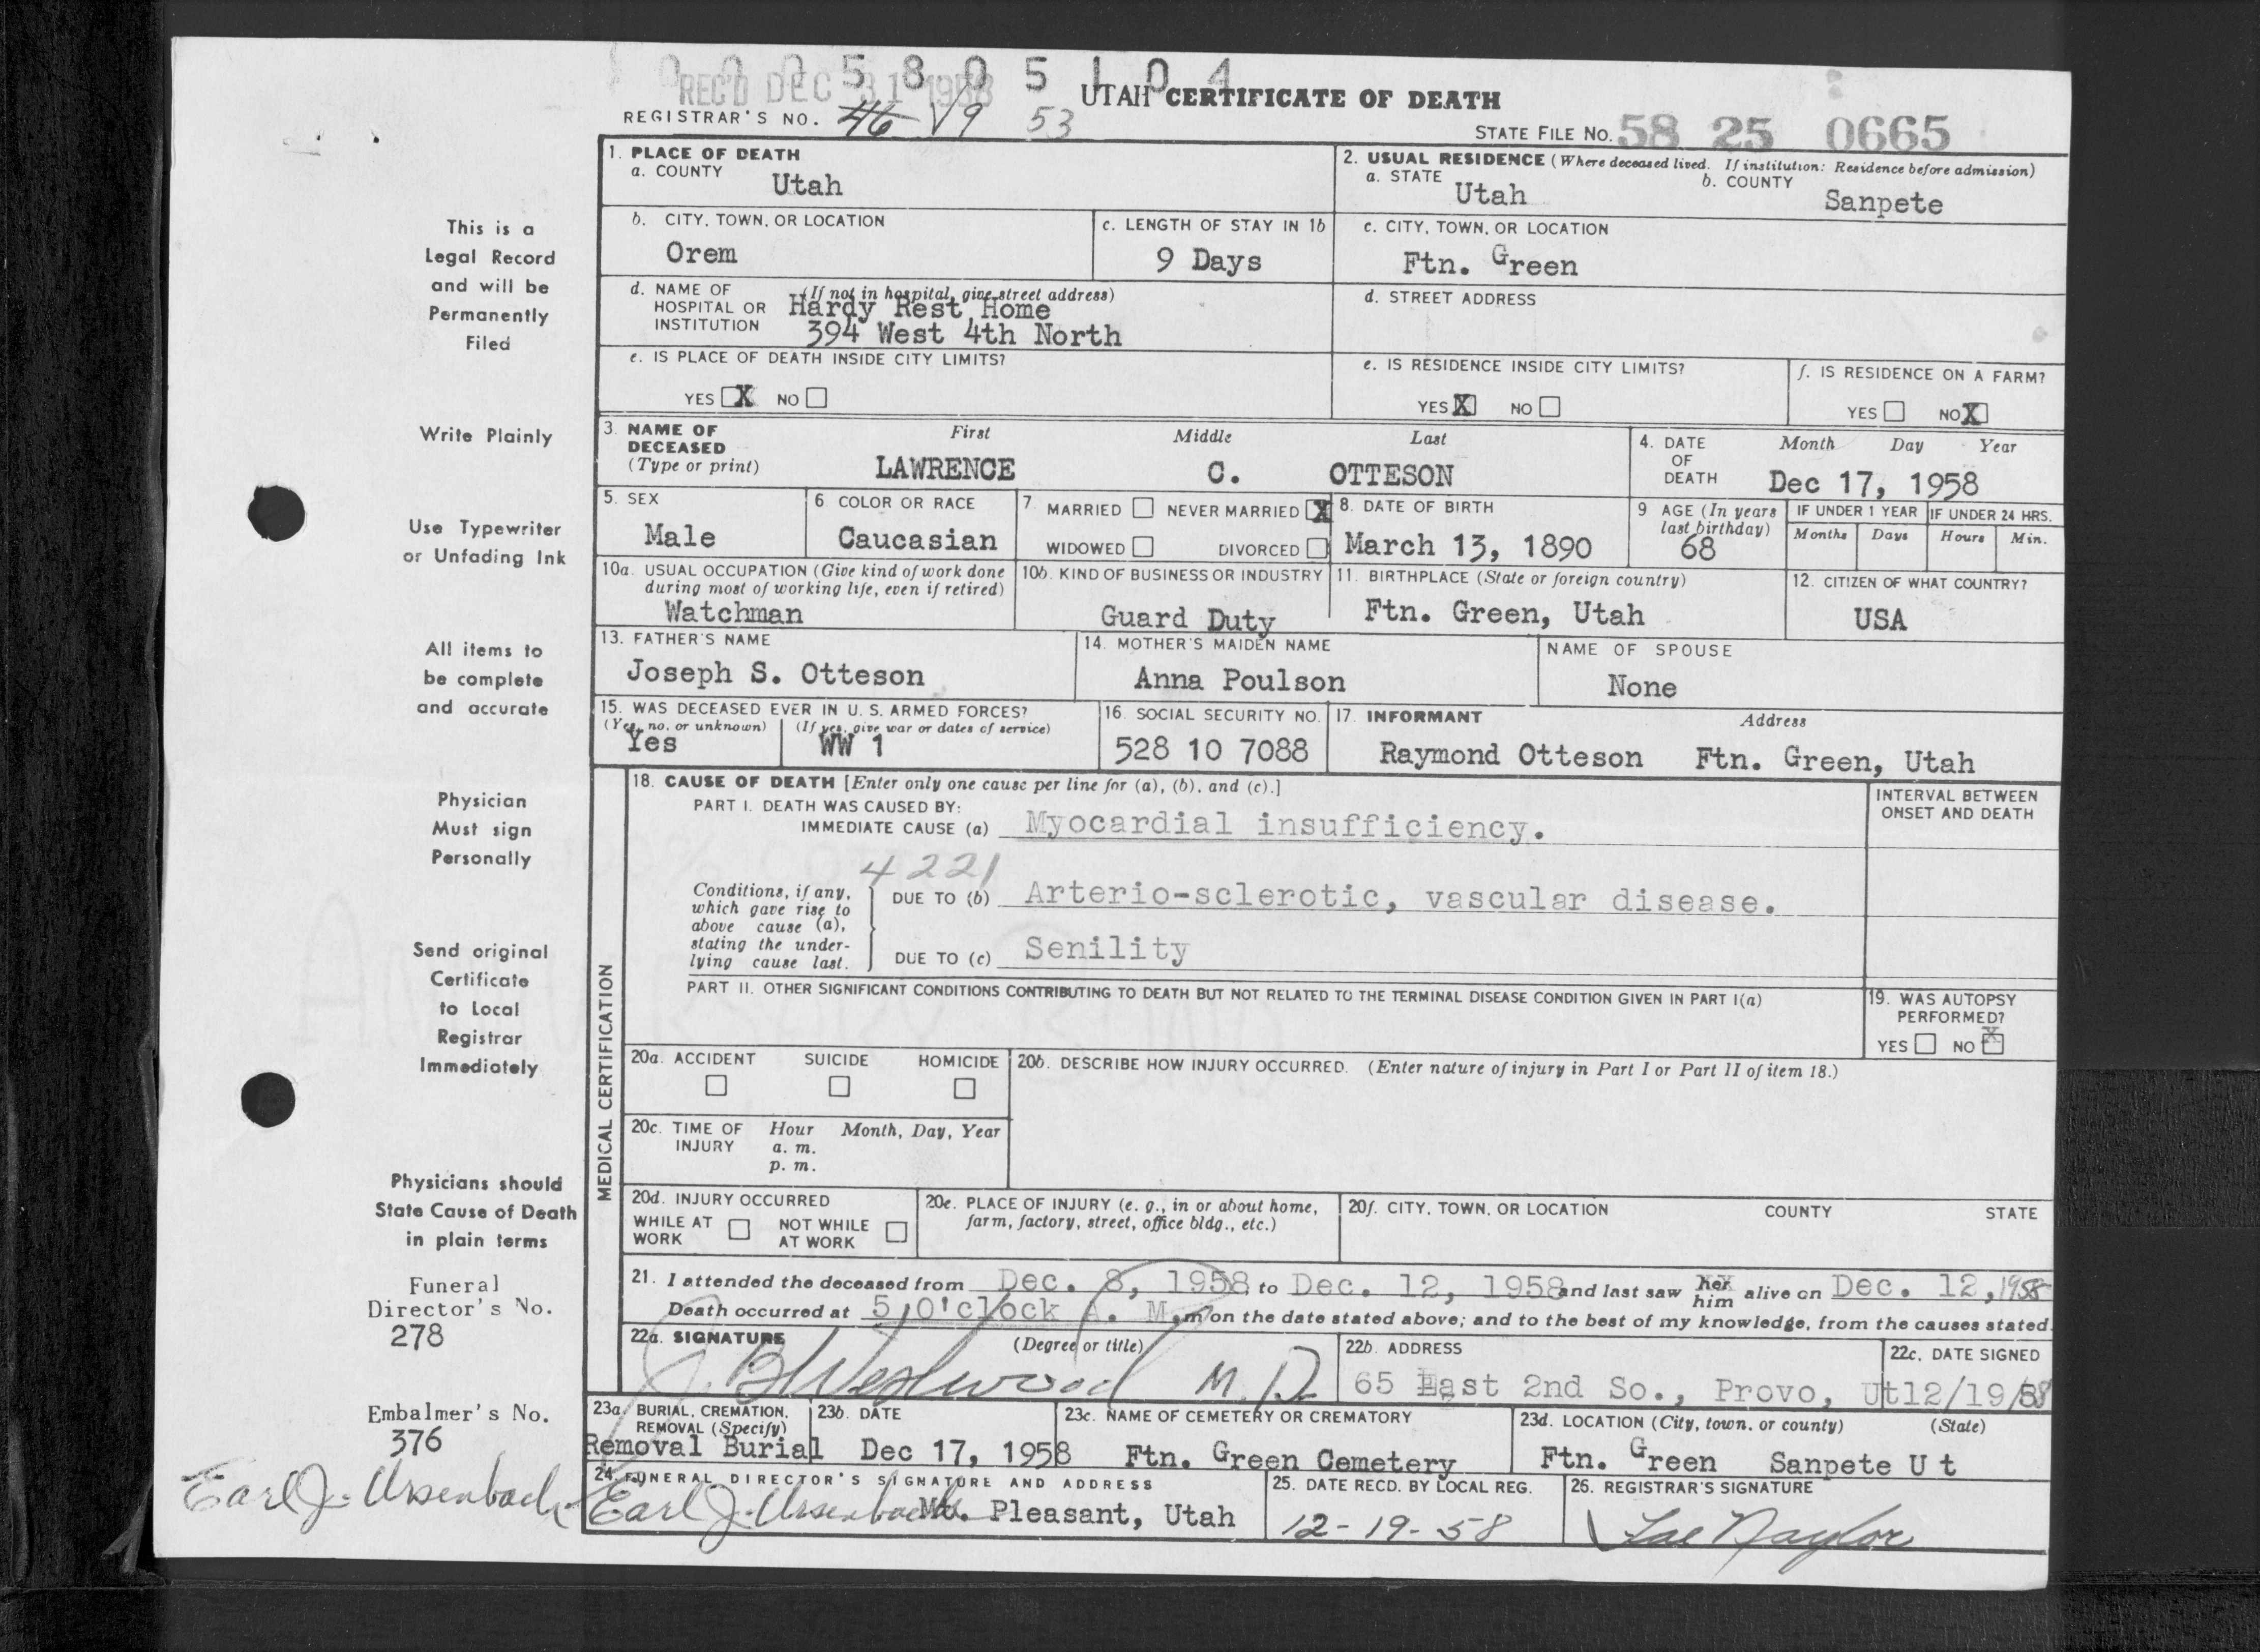 0 0 0 5 8 0 5 1 0 4
REC'D DEC 31 1958
UTAH CERTIFICATE OF DEATH
REGISTRAR'S NO. 46 V9 53
STATE FILE NO. 58 25 0665
1. PLACE OF DEATH
a. COUNTY Utah
2. USUAL RESIDENCE (Where deceased lived. If institution: Residence before admission)
a. STATE Utah b. COUNTY Sanpete
b. CITY, TOWN, OR LOCATION Orem
c. LENGTH OF STAY IN 1b 9 Days
c. CITY, TOWN, OR LOCATION Ftn. Green
d. NAME OF HOSPITAL OR INSTITUTION (If not in hospital, give street address)
Hardy Rest Home
394 West 4th North
d. STREET ADDRESS
e. IS PLACE OF DEATH INSIDE CITY LIMITS?
YES X NO
e. IS RESIDENCE INSIDE CITY LIMITS?
YES X NO
f. IS RESIDENCE ON A FARM?
YES NO X
3. NAME OF DECEASED (Type or print)
First Middle Last
LAWRENCE C. OTTESON
4. DATE OF DEATH Month Day Year
Dec 17, 1958
5. SEX Male
6. COLOR OR RACE Caucasian
7. MARRIED NEVER MARRIED X
WIDOWED DIVORCED
8. DATE OF BIRTH March 13, 1890
9 AGE (In years last birthday) 68
IF UNDER 1 YEAR Months Days
IF UNDER 24 HRS. Hours Min.
10a. USUAL OCCUPATION (Give kind of work done during most of working life, even if retired)
Watchman
10b. KIND OF BUSINESS OR INDUSTRY
Guard Duty
11. BIRTHPLACE (State or foreign country)
Ftn. Green, Utah
12. CITIZEN OF WHAT COUNTRY?
USA
13. FATHER'S NAME
Joseph S. Otteson
14. MOTHER'S MAIDEN NAME
Anna Poulson
NAME OF SPOUSE
None
15. WAS DECEASED EVER IN U. S. ARMED FORCES?
(Yes, no, or unknown) (If yes, give war or dates of service)
Yes WW 1
16. SOCIAL SECURITY NO.
528 10 7088
17. INFORMANT Address
Raymond Otteson Ftn. Green, Utah
MEDICAL CERTIFICATION
18. CAUSE OF DEATH [Enter only one cause per line for (a), (b), and (c).]
INTERVAL BETWEEN ONSET AND DEATH
PART I. DEATH WAS CAUSED BY:
IMMEDIATE CAUSE (a) Myocardial insufficiency.
4221
Conditions, if any, which gave rise to above cause (a), stating the underlying cause last.
DUE TO (b) Arterio-sclerotic, vascular disease.
DUE TO (c) Senility
PART II. OTHER SIGNIFICANT CONDITIONS CONTRIBUTING TO DEATH BUT NOT RELATED TO THE TERMINAL DISEASE CONDITION GIVEN IN PART I(a)
19. WAS AUTOPSY PERFORMED?
YES NO X
20a. ACCIDENT SUICIDE HOMICIDE
20b. DESCRIBE HOW INJURY OCCURRED. (Enter nature of injury in Part I or Part II of item 18.)
20c. TIME OF INJURY Hour Month, Day, Year
a. m.
p. m.
20d. INJURY OCCURRED
WHILE AT WORK NOT WHILE AT WORK
20e. PLACE OF INJURY (e. g., in or about home, farm, factory, street, office bldg., etc.)
20f. CITY, TOWN, OR LOCATION COUNTY STATE
21. I attended the deceased from Dec. 8, 1958, to Dec. 12, 1958 and last saw her him alive on Dec. 12, 1958
Death occurred at 5 O'clock A. M. m on the date stated above; and to the best of my knowledge, from the causes stated.
22a. SIGNATURE (Degree or title)
J. B. Westwood M. D.
22b. ADDRESS
65 East 2nd So., Provo, Ut
22c. DATE SIGNED
12/19/58
23a. BURIAL, CREMATION, REMOVAL (Specify)
Removal Burial
23b. DATE
Dec 17, 1958
23c. NAME OF CEMETERY OR CREMATORY
Ftn. Green Cemetery
23d. LOCATION (City, town, or county) (State)
Ftn. Green Sanpete Ut
24. FUNERAL DIRECTOR'S SIGNATURE AND ADDRESS
Earl J. Ursenbach Mt. Pleasant, Utah
25. DATE RECD. BY LOCAL REG.
12-19-58
26. REGISTRAR'S SIGNATURE
Naylor
This is a
Legal Record
and will be
Permanently
Filed
Write Plainly
Use Typewriter
or Unfading Ink
All items to
be complete
and accurate
Physician
Must sign
Personally
Send original
Certificate
to Local
Registrar
Immediately
Physicians should
State Cause of Death
in plain terms
Funeral
Director's No.
278
Embalmer's No.
376
Earl J. Ursenbach